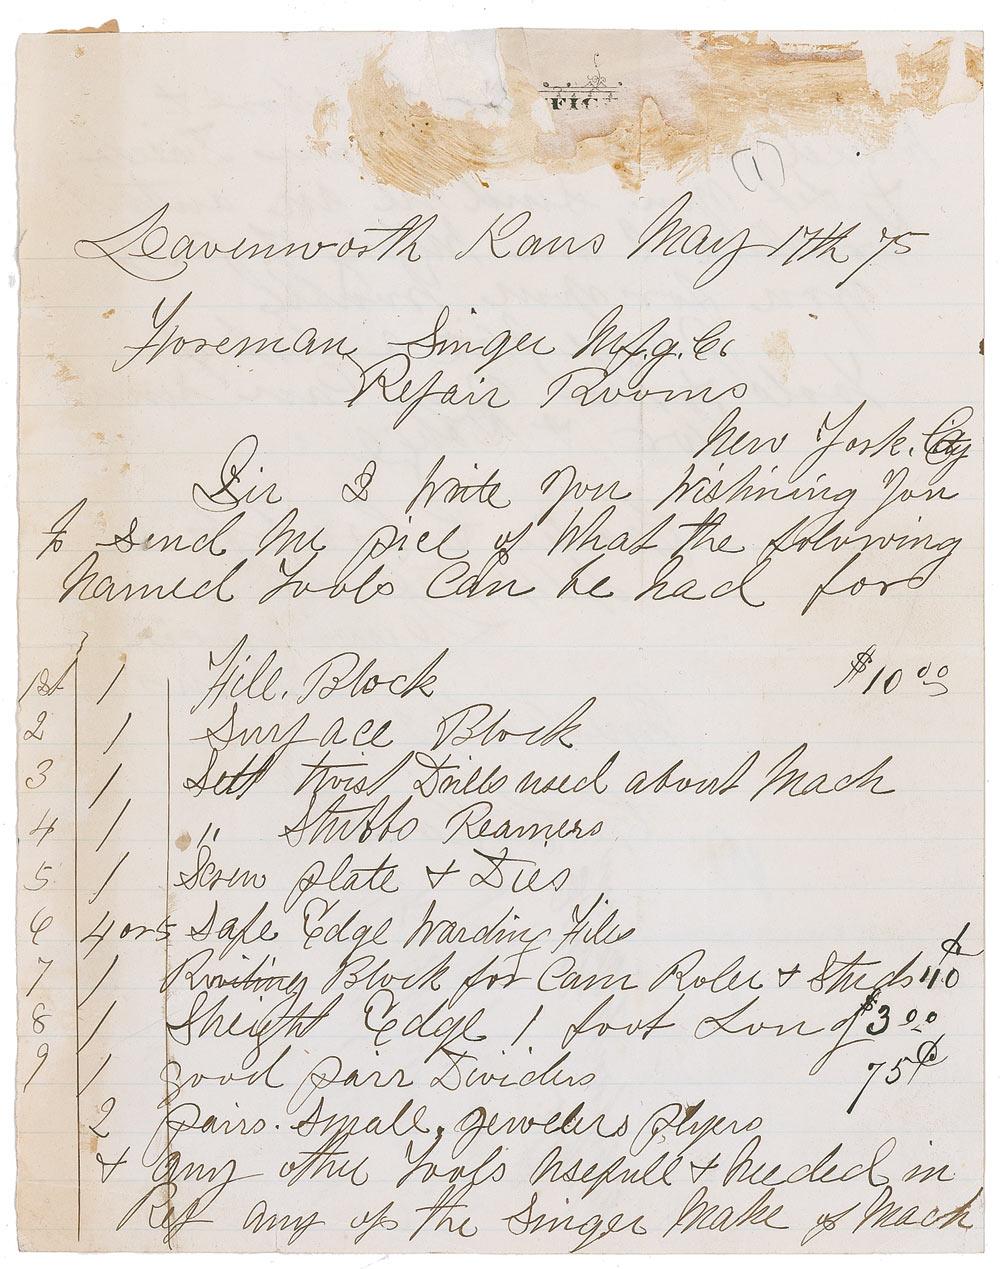 FIC
(1)
Leavenworth Kans May 17th 75
Foreman Singer Mf.g. Co
Repair Rooms
New York. City
Sir I Write you Wishining you
to send me pice of What the folowing
named Tools Can be had for
1st 1 Fill. Block $10 00
2 1 Surface Block
3 1 Sett twist Drills used about Mach
4 1 " Stubbs Reamers
5 1 Screw plate & Dies
6 4 or 5 Safe Edge Warding Files
7 1 Riviting Block for Cam Roler & Studs 40 ¢
8 1 Streight Edge 1 foot Long $3 00
9 1 good pair Dividers 75¢
2 pairs. small. jewelers plyers
& any other Tools usefull & needed in
Rep any of the Singer Make of Mach